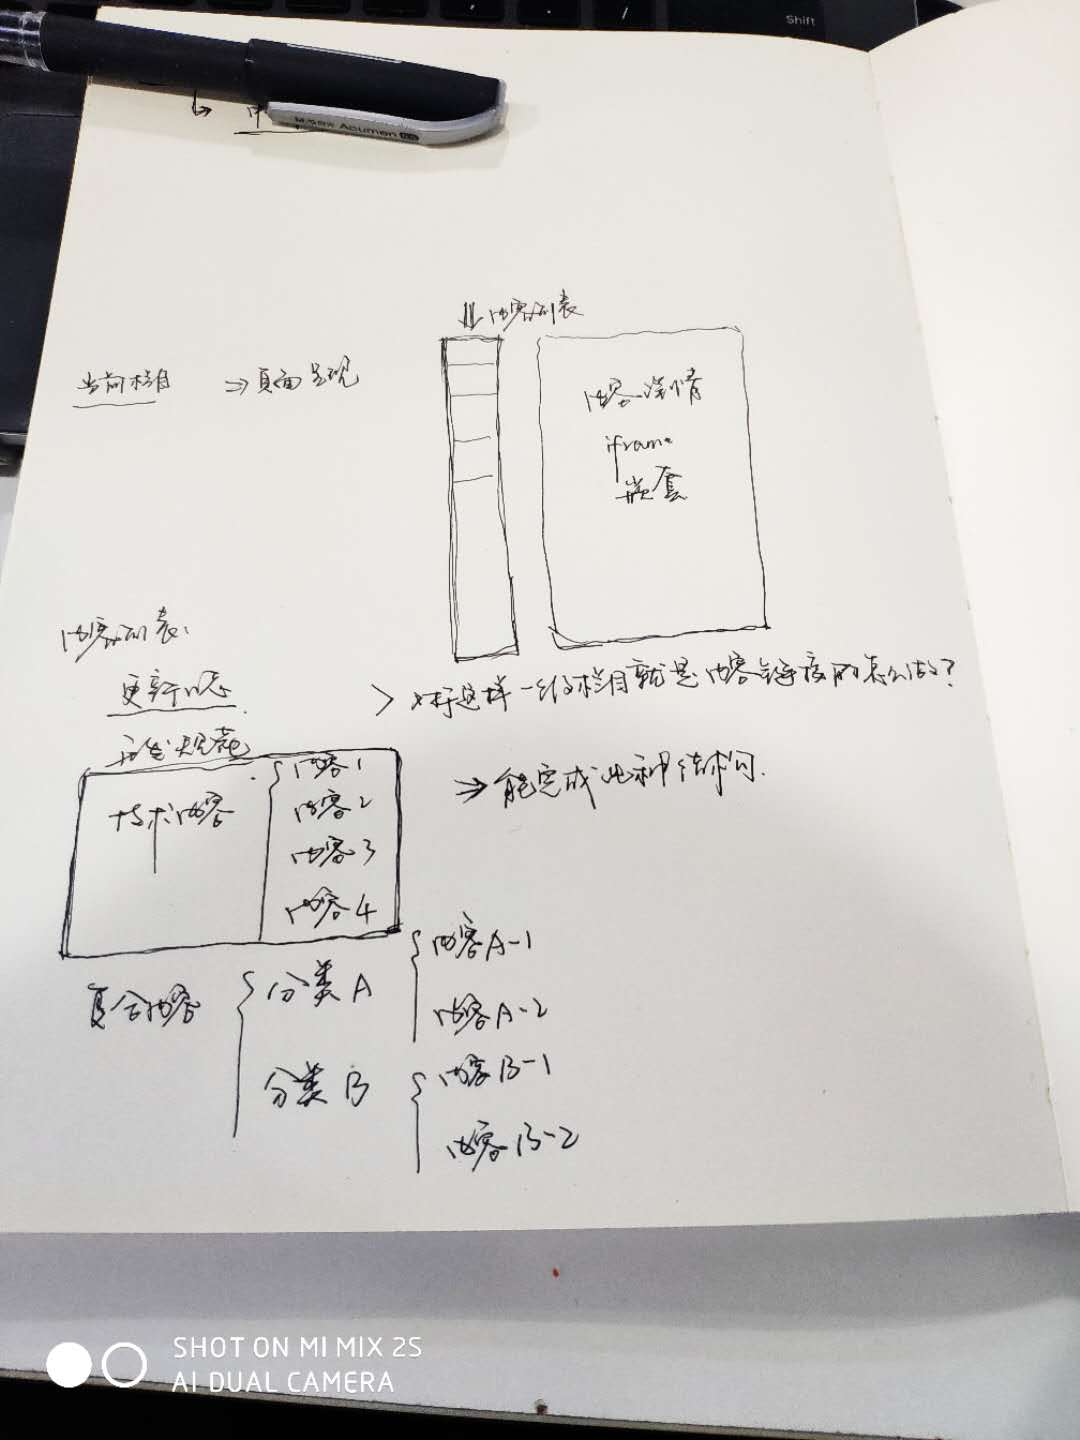 Shift
M&G AI Acumen
⇓ 内容列表
当前栏目 ⇒ 页面呈现
内容详情
iframe
嵌套
内容列表:
更新日志
> 对于这样一级栏目就是内容链接的怎么做?
开发规范
技术内容
内容1
内容2
内容3
内容4
⇒ 能完成此种结构
复合内容
分类A
内容A-1
内容A-2
分类B
内容B-1
内容B-2
SHOT ON MI MIX 2S
AI DUAL CAMERA